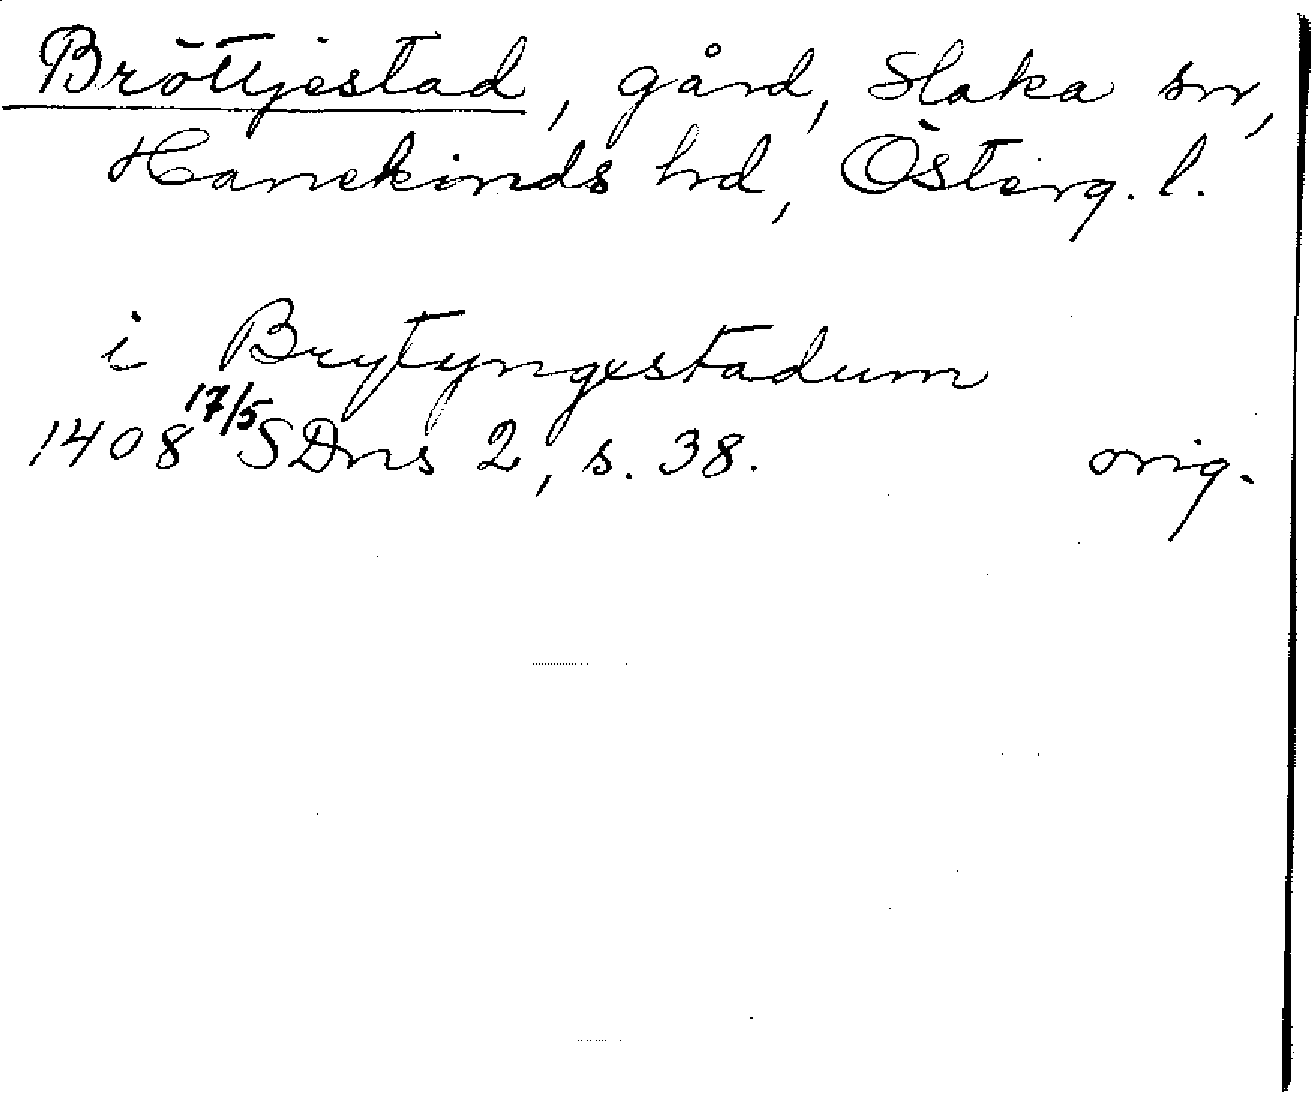 Bröttjestad, gård, Slaka sn,
Hanekinds hd, Österg. l.
i Brytyngestadum
1408 17/5 SDns 2, s. 38. orig.